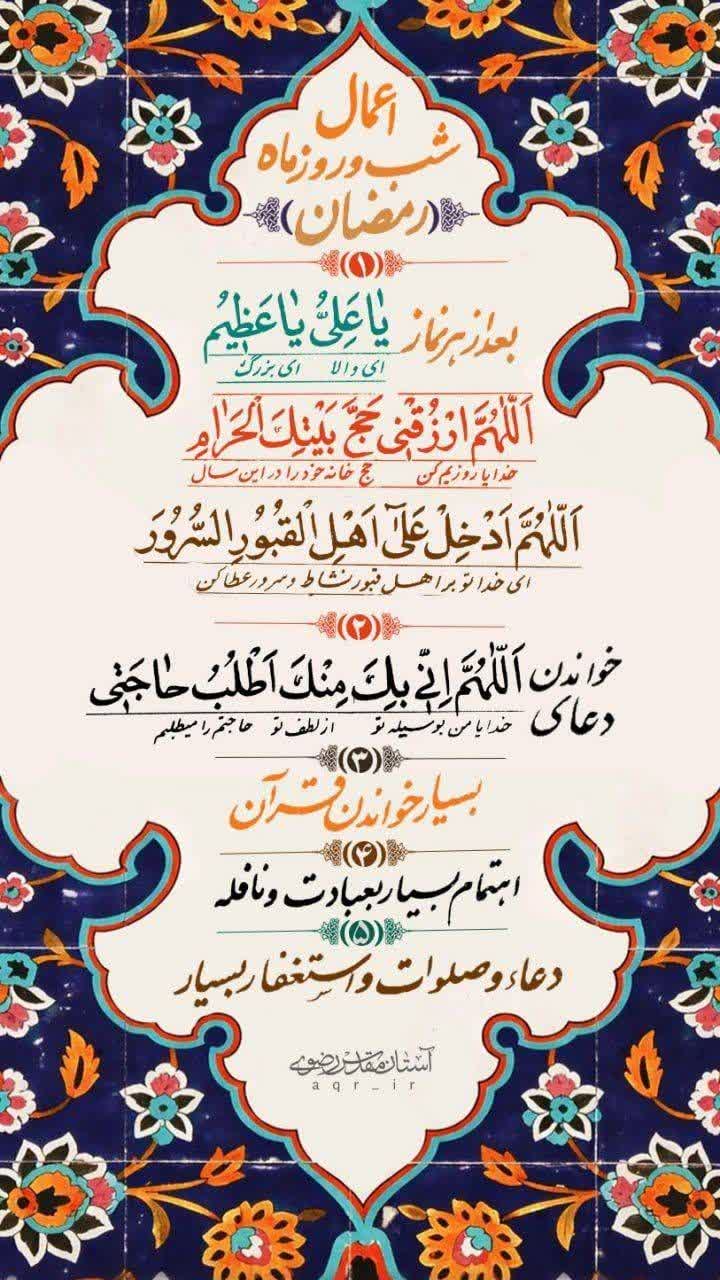 اعمال
شب و روز ماه
(رمضان)
(۱)
بعد از هر نماز یٰا عَلِیُّ یٰا عَظٖیمُ
ای والا ای بزرگ
اَللّٰهُمَّ ارْزُقْنٖی حَجَّ بَیْتِکَ الْحَرٰامِ
خدایا روزیم کن حج خانه خود را در این سال
اَللّٰهُمَّ اَدْخِلْ عَلیٰٓ اَهْلِ الْقُبُورِ السُّرُورَ
ای خدا تو بر اهل قبور نشاط و سرور عطا کن
(۲)
خواندن دعای اَللّٰهُمَّ اِنّٖی بِکَ وَ مِنْکَ اَطْلُبُ حٰاجَتٖی
خدایا من بوسیله تو از لطف تو حاجتم را میطلبم
(۳)
بسیار خواندن قرآن
(۴)
اهتمام بسیار بعبادت و نافله
(۵)
دعاء و صلوات و استغفار بسیار
آستان مقدس رضوی
aqr_ir